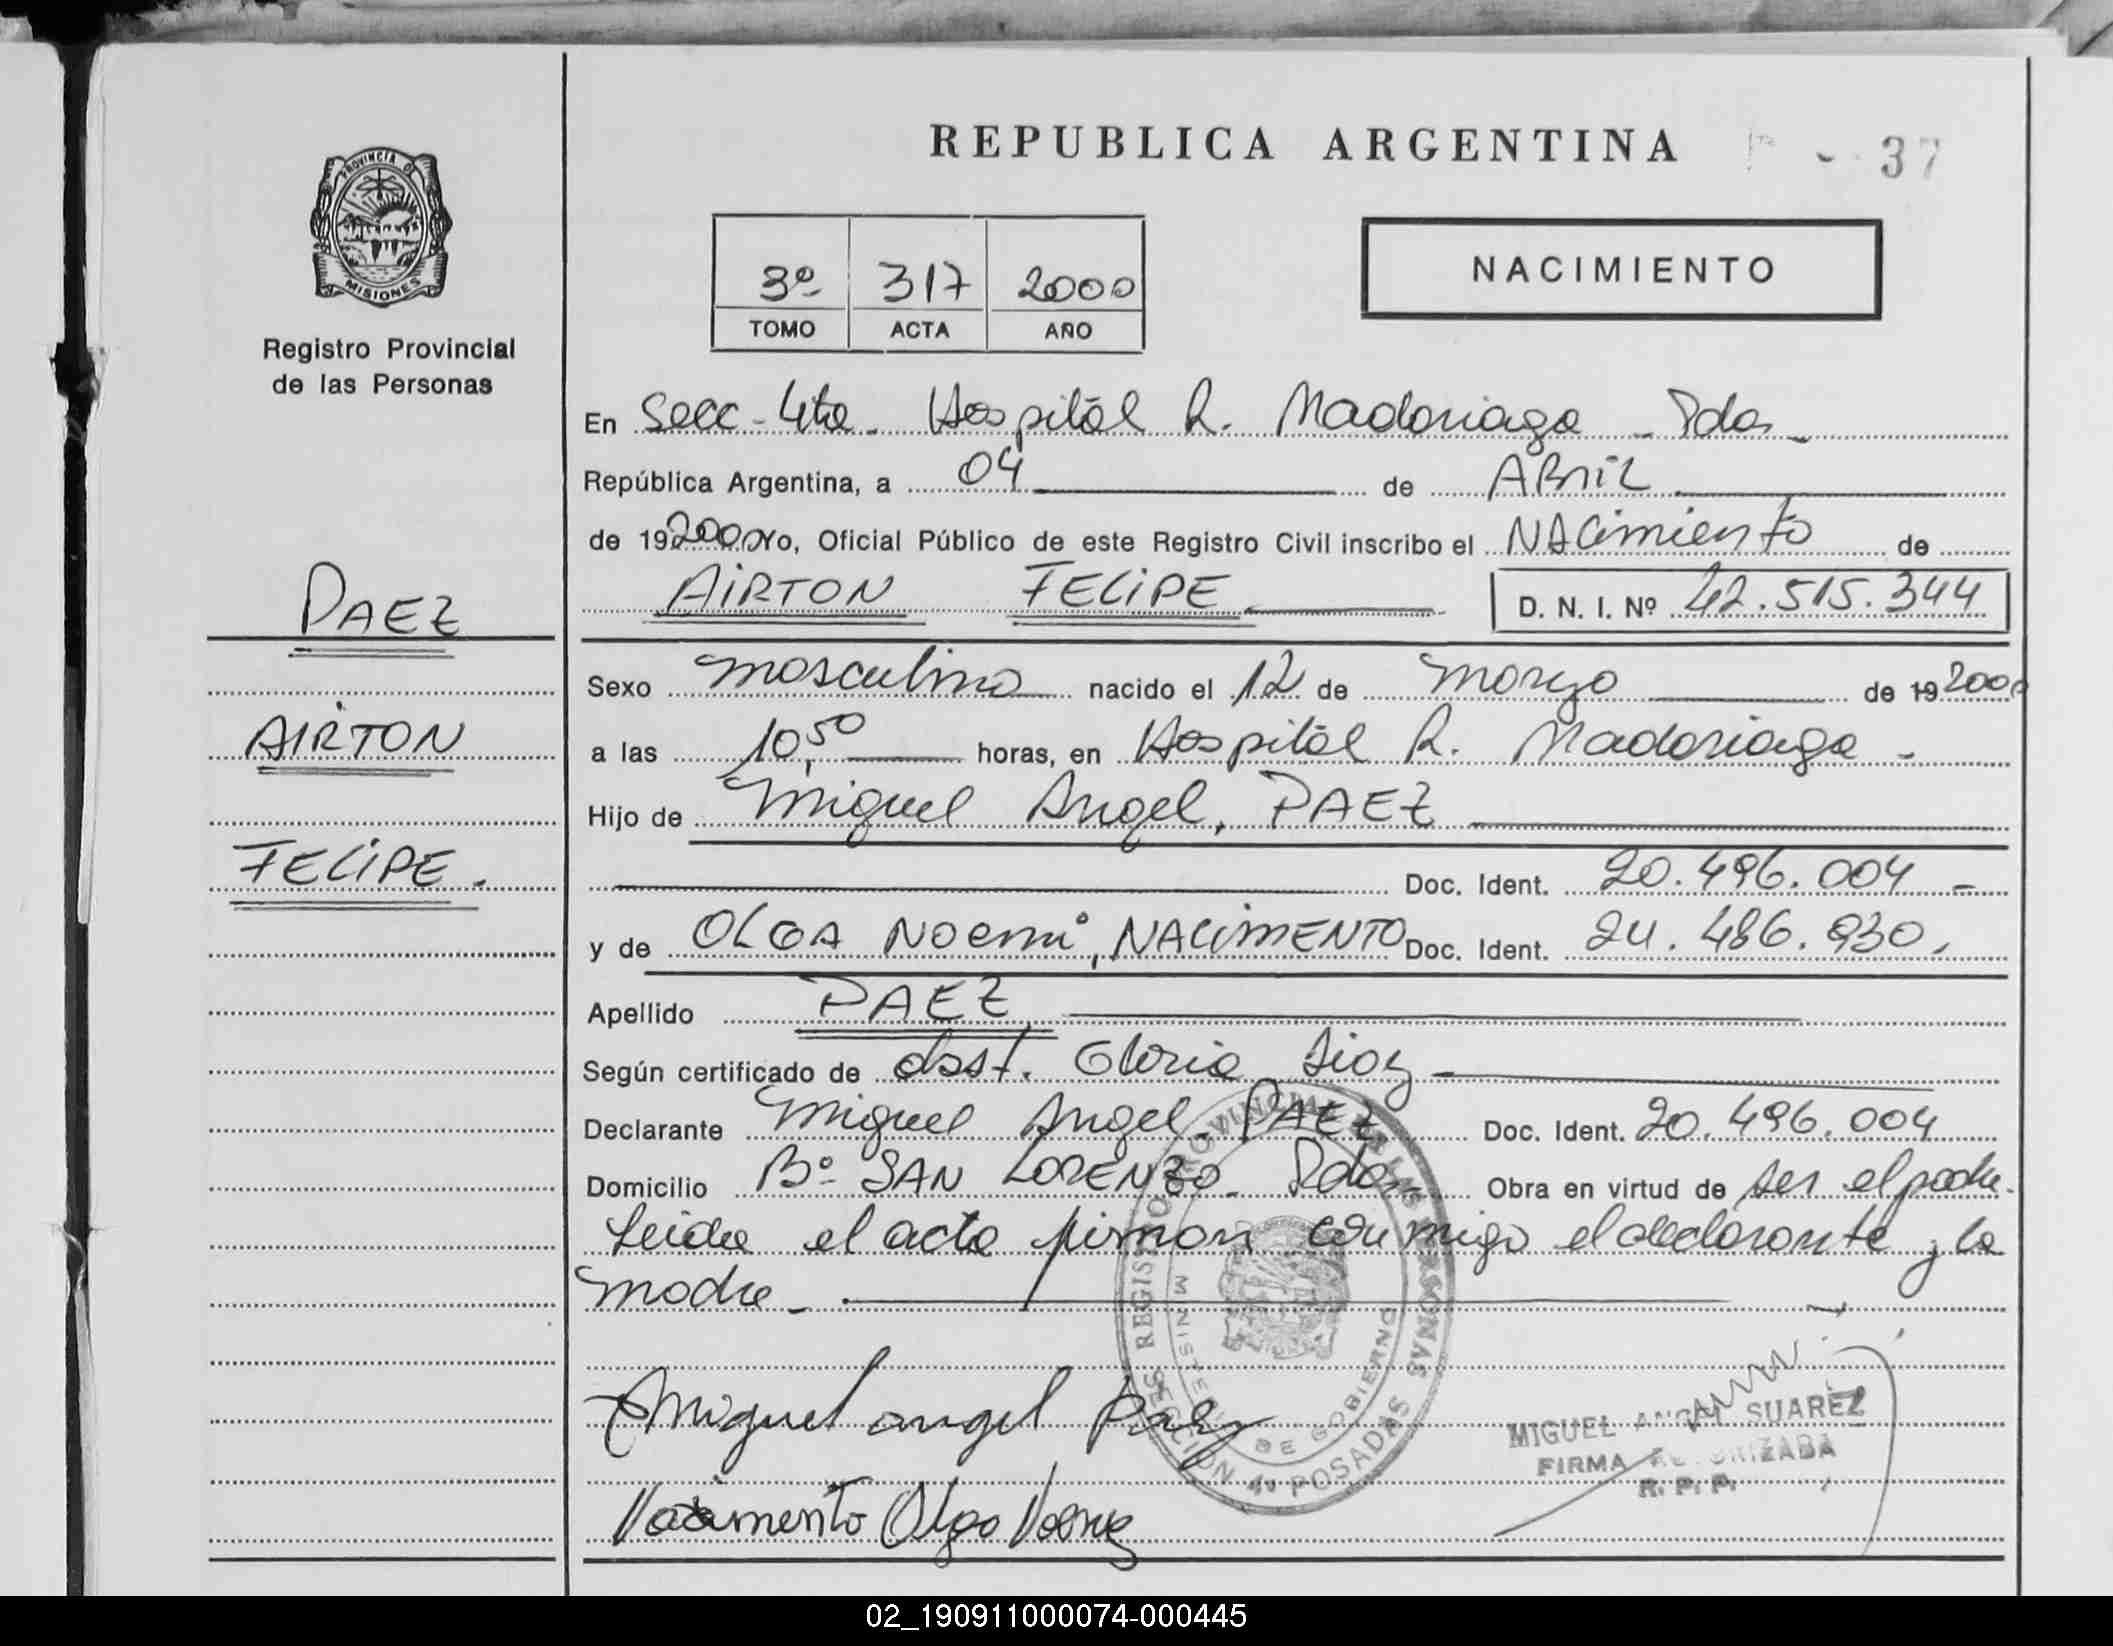 REPUBLICA ARGENTINA
37
PROVINCIA DE
MISIONES
Registro Provincial
de las Personas
3º 317 2000
TOMO ACTA AÑO
NACIMIENTO
En Secc - 4ta - Hospital R. Madariaga - Pdas -
República Argentina, a 04 de ABRIL
de 192000 Yo, Oficial Público de este Registro Civil inscribo el NACimiento de
AIRTON FELIPE D. N. I. Nº 42.515.344
PAEZ
AIRTON
FELIPE.
Sexo masculino nacido el 12 de marzo de 19 2000
a las 10,50 horas, en Hospital R. Madariaga -
Hijo de Miguel Angel, PAEZ
Doc. Ident. 20.496.004 -
y de OLGA NOemi, NACIMENTO Doc. Ident. 24.486.930,
Apellido PAEZ
Según certificado de obst. Gloria
Declarante Miguel Angel. PAEZ Doc. Ident. 20.496.004
Domicilio Bº SAN LORENZO - Pdas Obra en virtud de ser el padre.
Leida el acta firman conmigo el declarante y la
madre -
Miguel angel Paez
Nacimento Olga
REGISTRO PROVINCIAL DE LAS PERSONAS
MINISTERIO DE GOBIERNO
SECCION 4ª POSADAS
MIGUEL ANGEL SUAREZ
FIRMA AUTORIZADA
R. P. P.
02_190911000074-000445